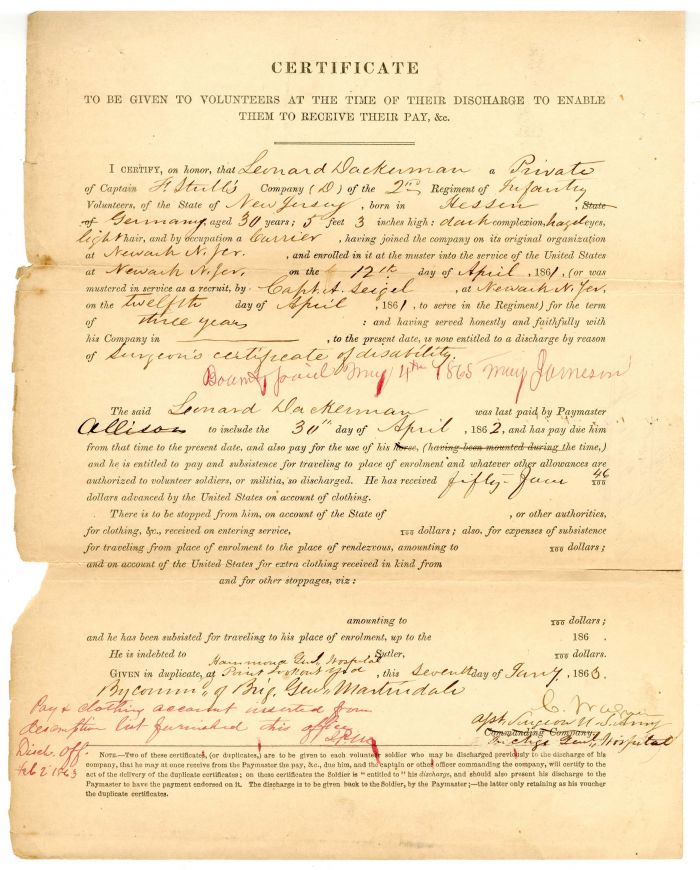 CERTIFICATE
TO BE GIVEN TO VOLUNTEERS AT THE TIME OF THEIR DISCHARGE TO ENABLE
THEM TO RECEIVE THEIR PAY, &c.
I CERTIFY, on honor, that Leonard Dackerman a Private
of Captain Company (D) of the 2nd Regiment of Infantry
Volunteers, of the State of New Jersey, born in Hessen, State
of Germany, aged 30 years; 5 feet 3 inches high: dark complexion, hazel eyes,
light hair, and by occupation a Carrier, having joined the company on its original organization
at Newark N. Jer., and enrolled in it at the muster into the service of the United States
at Newark N. Jer. on the 12th day of April, 1861, (or was
mustered in service as a recruit, by Capt. A. Seigel, at Newark N. Jer.
on the twelfth day of April, 1861, to serve in the Regiment) for the term
of three years : and having served honestly and faithfully with
his Company in , to the present date, is now entitled to a discharge by reason
of Surgeon's certificate of disability.
Bounty paid May 11th 1865 Jameson
The said Leonard Dackerman was last paid by Paymaster
Allison to include the 30th day of April, 1862, and has pay due him
from that time to the present date, and also pay for the use of his horse, (having been mounted during the time,)
and he is entitled to pay and subsistence for traveling to place of enrolment and whatever other allowances are
authorized to volunteer soldiers, or militia, so discharged. He has received fifty-four 46/100
dollars advanced by the United States on account of clothing.
There is to be stopped from him, on account of the State of , or other authorities,
for clothing, &c., received on entering service, 100 dollars; also, for expenses of subsistence
for traveling from place of enrolment to the place of rendezvous, amounting to 100 dollars;
and on account of the United States for extra clothing received in kind from
and for other stoppages, viz:
amounting to 100 dollars;
and he has been subsisted for traveling to his place of enrolment, up to the 186 .
He is indebted to Sutler, 100 dollars.
Hammond Genl. Hospital
GIVEN in duplicate, at Point Lookout Md, this Seventh day of Jany, 1863.
By comm'd of Brig. Genl. Martindale
C. Wagner
Asst. Surgeon U.S. Army
Commanding Company.
In chge Genl. Hospital
Pay & clothing account inserted from
descriptive list furnished this office
Disch. off.
Feb 2 1863
NOTE.—Two of these certificates, (or duplicates,) are to be given to each volunteer soldier who may be discharged previously to the discharge of his
company, that he may at once receive from the Paymaster the pay, &c., due him, and the captain or other officer commanding the company, will certify to the
act of the delivery of the duplicate certificates; on these certificates the Soldier is "entitled to" his discharge, and should also present his discharge to the
Paymaster to have the payment endorsed on it. The discharge is to be given back to the Soldier, by the Paymaster;—the latter only retaining as his voucher
the duplicate certificates.